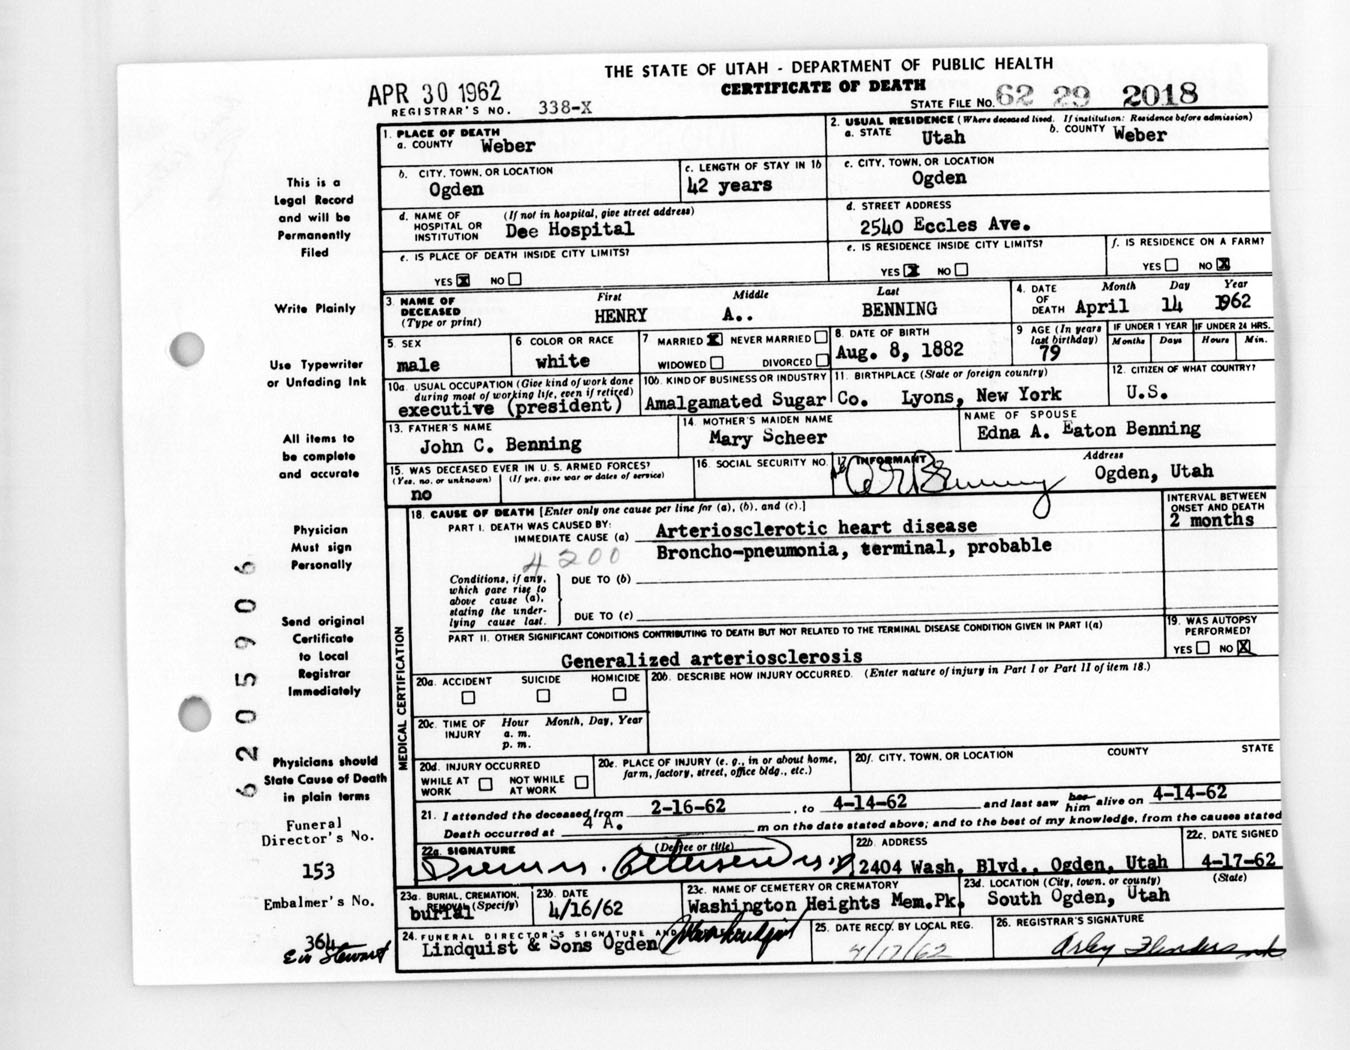 THE STATE OF UTAH - DEPARTMENT OF PUBLIC HEALTH
CERTIFICATE OF DEATH
APR 30 1962
REGISTRAR'S NO. 338-X
STATE FILE NO. 62 29 2018
This is a
Legal Record
and will be
Permanently
Filed
Write Plainly
Use Typewriter
or Unfading Ink
All items to
be complete
and accurate
Physician
Must sign
Personally
Send original
Certificate
to Local
Registrar
Immediately
Physicians should
State Cause of Death
in plain terms
Funeral
Director's No.
153
Embalmer's No.
364
Stewart
6205906
1. PLACE OF DEATH
a. COUNTY Weber
2. USUAL RESIDENCE (Where deceased lived. If institution: Residence before admission)
a. STATE Utah b. COUNTY Weber
b. CITY, TOWN, OR LOCATION Ogden
c. LENGTH OF STAY IN 1b 42 years
c. CITY, TOWN, OR LOCATION Ogden
d. NAME OF HOSPITAL OR INSTITUTION (If not in hospital, give street address) Dee Hospital
d. STREET ADDRESS 2540 Eccles Ave.
e. IS PLACE OF DEATH INSIDE CITY LIMITS?
YES X NO
e. IS RESIDENCE INSIDE CITY LIMITS?
YES X NO
f. IS RESIDENCE ON A FARM?
YES NO X
3. NAME OF DECEASED (Type or print) First Middle Last
HENRY A.. BENNING
4. DATE OF DEATH Month Day Year
April 14 1962
5. SEX male
6. COLOR OR RACE white
7 MARRIED X NEVER MARRIED
WIDOWED DIVORCED
8. DATE OF BIRTH Aug. 8, 1882
9 AGE (In years last birthday) 79
IF UNDER 1 YEAR Months Days
IF UNDER 24 HRS. Hours Min.
10a. USUAL OCCUPATION (Give kind of work done during most of working life, even if retired)
executive (president)
10b. KIND OF BUSINESS OR INDUSTRY
Amalgamated Sugar Co.
11. BIRTHPLACE (State or foreign country)
Lyons, New York
12. CITIZEN OF WHAT COUNTRY?
U.S.
13. FATHER'S NAME
John C. Benning
14. MOTHER'S MAIDEN NAME
Mary Scheer
NAME OF SPOUSE
Edna A. Eaton Benning
15. WAS DECEASED EVER IN U.S. ARMED FORCES?
(Yes, no, or unknown) (If yes, give war or dates of service)
no
16. SOCIAL SECURITY NO.
17. INFORMANT Address
Benning Ogden, Utah
MEDICAL CERTIFICATION
18. CAUSE OF DEATH [Enter only one cause per line for (a), (b), and (c).]
INTERVAL BETWEEN ONSET AND DEATH
PART I. DEATH WAS CAUSED BY:
IMMEDIATE CAUSE (a) Arteriosclerotic heart disease 2 months
4200 Broncho-pneumonia, terminal, probable
Conditions, if any, which gave rise to above cause (a), stating the underlying cause last.
DUE TO (b)
DUE TO (c)
PART II. OTHER SIGNIFICANT CONDITIONS CONTRIBUTING TO DEATH BUT NOT RELATED TO THE TERMINAL DISEASE CONDITION GIVEN IN PART I(a)
Generalized arteriosclerosis
19. WAS AUTOPSY PERFORMED?
YES NO X
20a. ACCIDENT SUICIDE HOMICIDE
20b. DESCRIBE HOW INJURY OCCURRED. (Enter nature of injury in Part I or Part II of item 18.)
20c. TIME OF INJURY Hour Month, Day, Year
a. m.
p. m.
20d. INJURY OCCURRED
WHILE AT WORK NOT WHILE AT WORK
20e. PLACE OF INJURY (e. g., in or about home, farm, factory, street, office bldg., etc.)
20f. CITY, TOWN, OR LOCATION COUNTY STATE
21. I attended the deceased from 2-16-62, to 4-14-62 and last saw her him alive on 4-14-62
Death occurred at 4 A. m on the date stated above; and to the best of my knowledge, from the causes stated
22a. SIGNATURE (Degree or title)
22b. ADDRESS
2404 Wash. Blvd., Ogden, Utah
22c. DATE SIGNED
4-17-62
23a. BURIAL, CREMATION, REMOVAL (Specify)
burial
23b. DATE
4/16/62
23c. NAME OF CEMETERY OR CREMATORY
Washington Heights Mem.Pk.
23d. LOCATION (City, town, or county) (State)
South Ogden, Utah
24. FUNERAL DIRECTOR'S SIGNATURE AND
Lindquist & Sons Ogden
25. DATE RECD. BY LOCAL REG.
4/17/62
26. REGISTRAR'S SIGNATURE